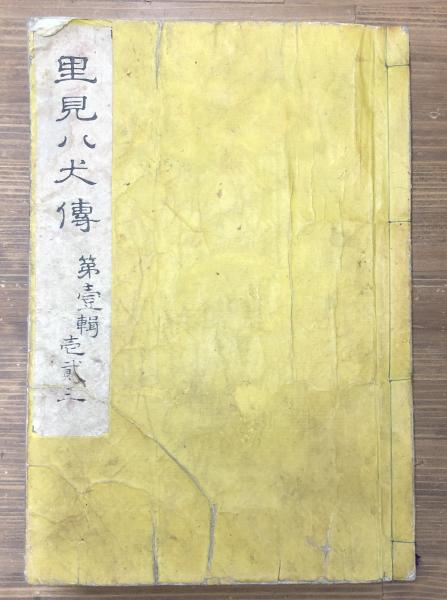 里見八犬傳
第壹輯
壱貳三